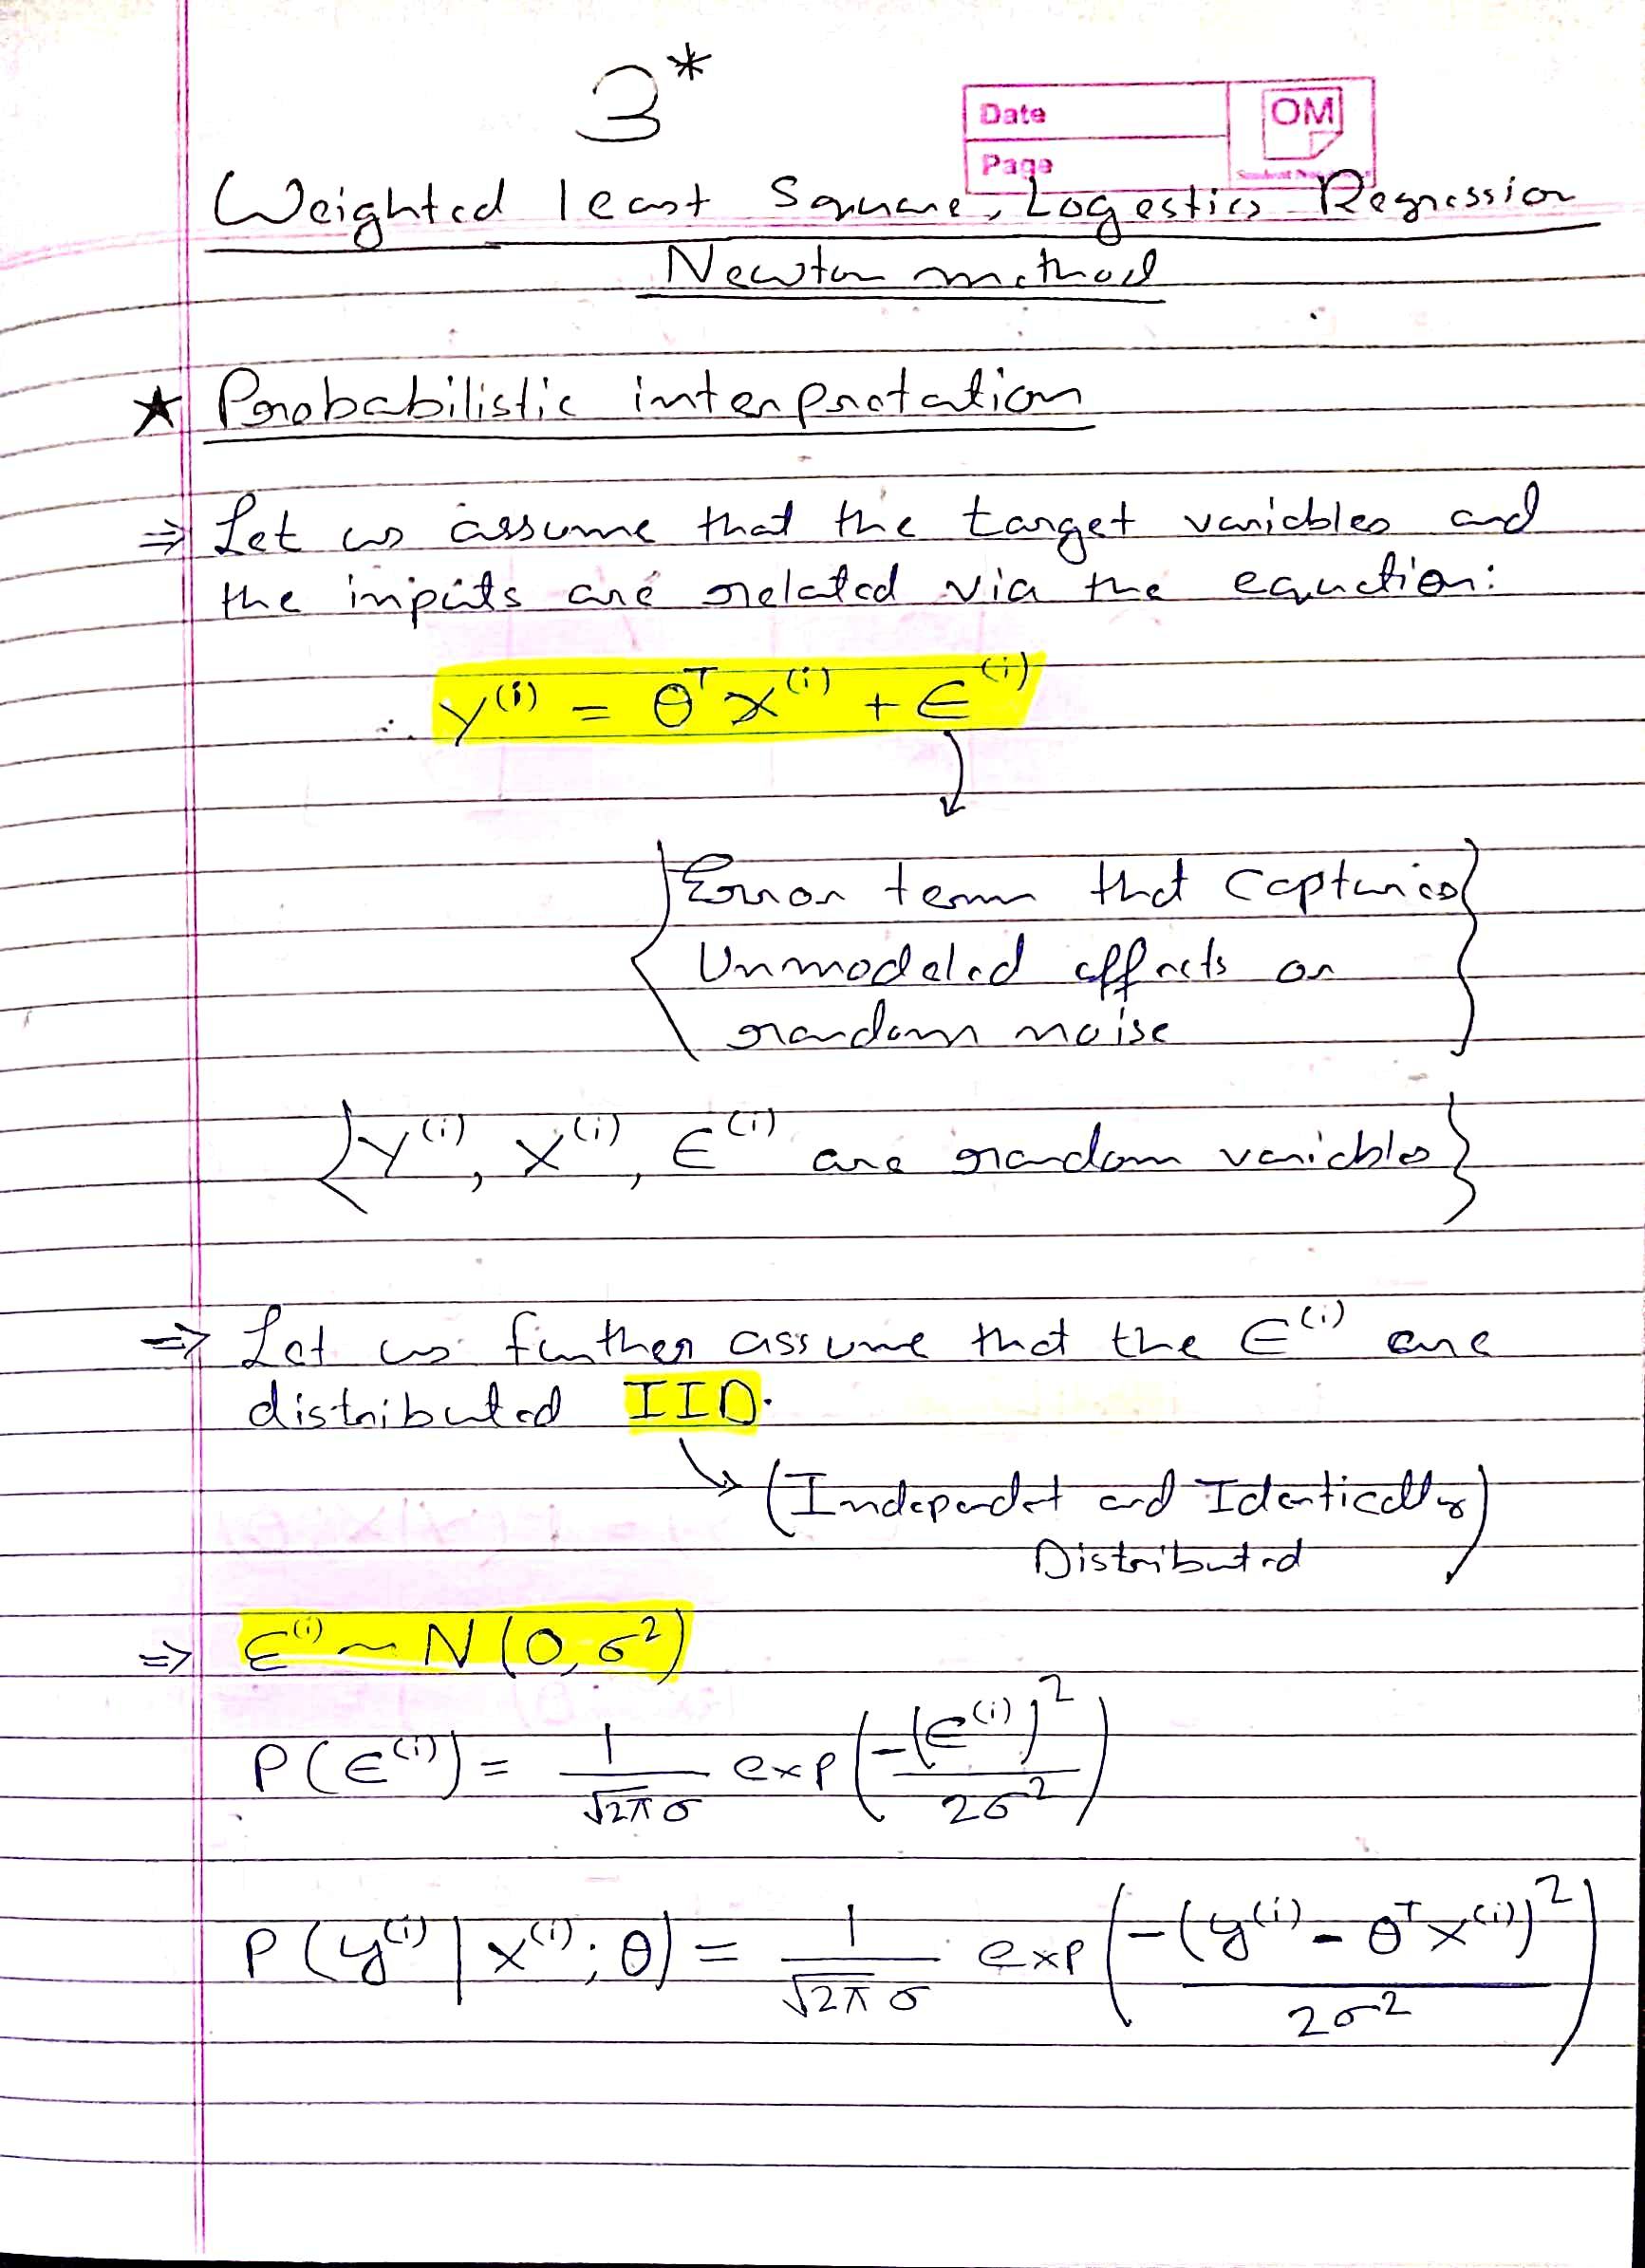 3*
Date
Page
OM
Weighted least Square, Logestics Regression
Newton method
★ Probabilistic interpretation
⇒ Let us assume that the target variables and
the inputs are related via the equation:
∴ y⁽ⁱ⁾ = θᵀ x⁽ⁱ⁾ + ∈⁽ⁱ⁾
{Error term that Captures
Unmodeled effects or
random noise}
{y⁽ⁱ⁾, x⁽ⁱ⁾, ∈⁽ⁱ⁾ are random variables}
⇒ Let us further assume that the ∈⁽ⁱ⁾ are
distributed IID.
(Independet and Identically
Distributed)
⇒ ε⁽ⁱ⁾ ~ N(0, σ²)
P(∈⁽ⁱ⁾) = 1/(√2π σ) exp(-(∈⁽ⁱ⁾)²/2σ²)
P(y⁽ⁱ⁾ | x⁽ⁱ⁾; θ) = 1/(√2π σ) exp(-(y⁽ⁱ⁾ - θᵀx⁽ⁱ⁾)²/2σ²)